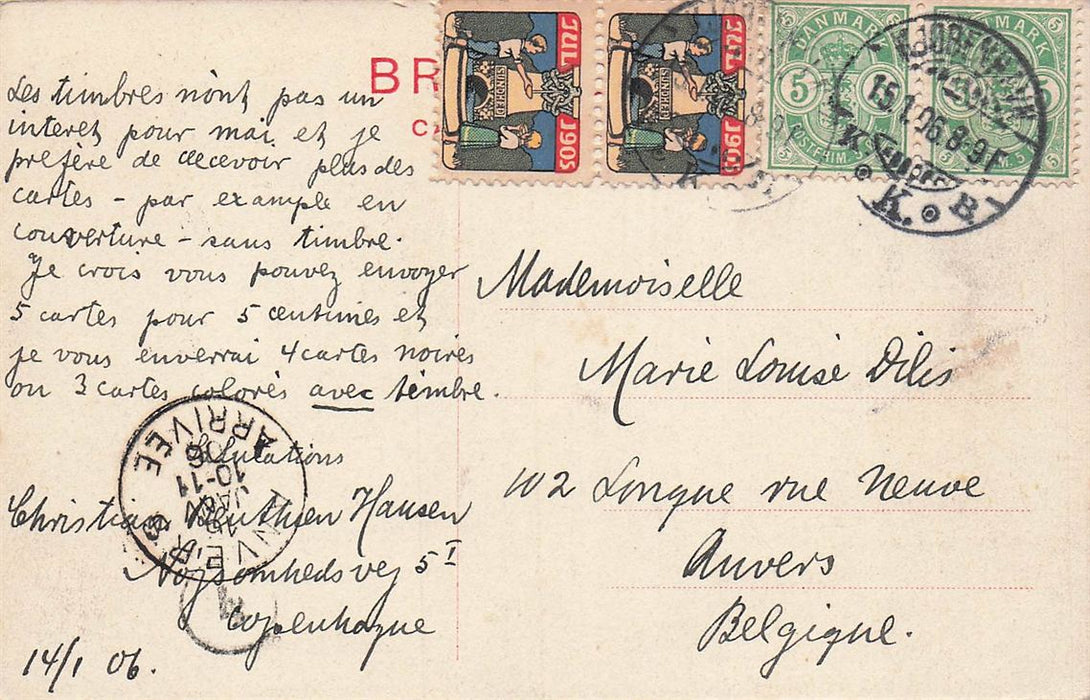 Les timbres n'ont pas un
interet pour mai et je
prefère de decevoir plus des
cartes - par example en
couverture - sans timbre.
Je crois vous pouvez envoyer
5 cartes pour 5 centimes et
je vous enverrai 4 cartes noires
ou 3 cartes colorés avec timbre.
Salutations
Christian Hansen
Nøjsomhedsvej 5 I
Copenhague
14/1 06.
BR
JUL
1905
JUL
1905
DANMARK
5 5
KJØBENHAVN
15.1.06.8-9F
K. B.
Mademoiselle
Marie Louise Dilis
102 Longue rue Neuve
Anvers
Belgique.
ANVERS
JANV
10-11
06
ARRIVEE